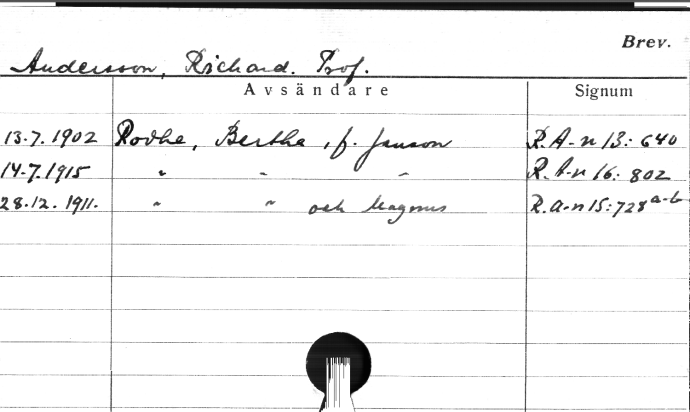 Brev.
Andersson, Richard. Prof.
Avsändare Signum
13.7.1902 Rodhe, Bertha, f. Janson R.A-n 13: 640
14.7.1915 " " " R.A-n 16: 802
28.12.1911. " " och Magnus R.a-n 15:728 a-b